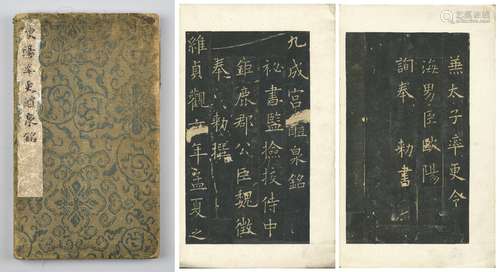 歐陽率更醴泉銘
九成宮醴泉銘
秘書監撿挍侍中
鉅鹿郡公臣魏徵
奉 勅撰
維貞觀六年孟夏之
兼太子率更令
海男臣歐陽
詢奉 勅書